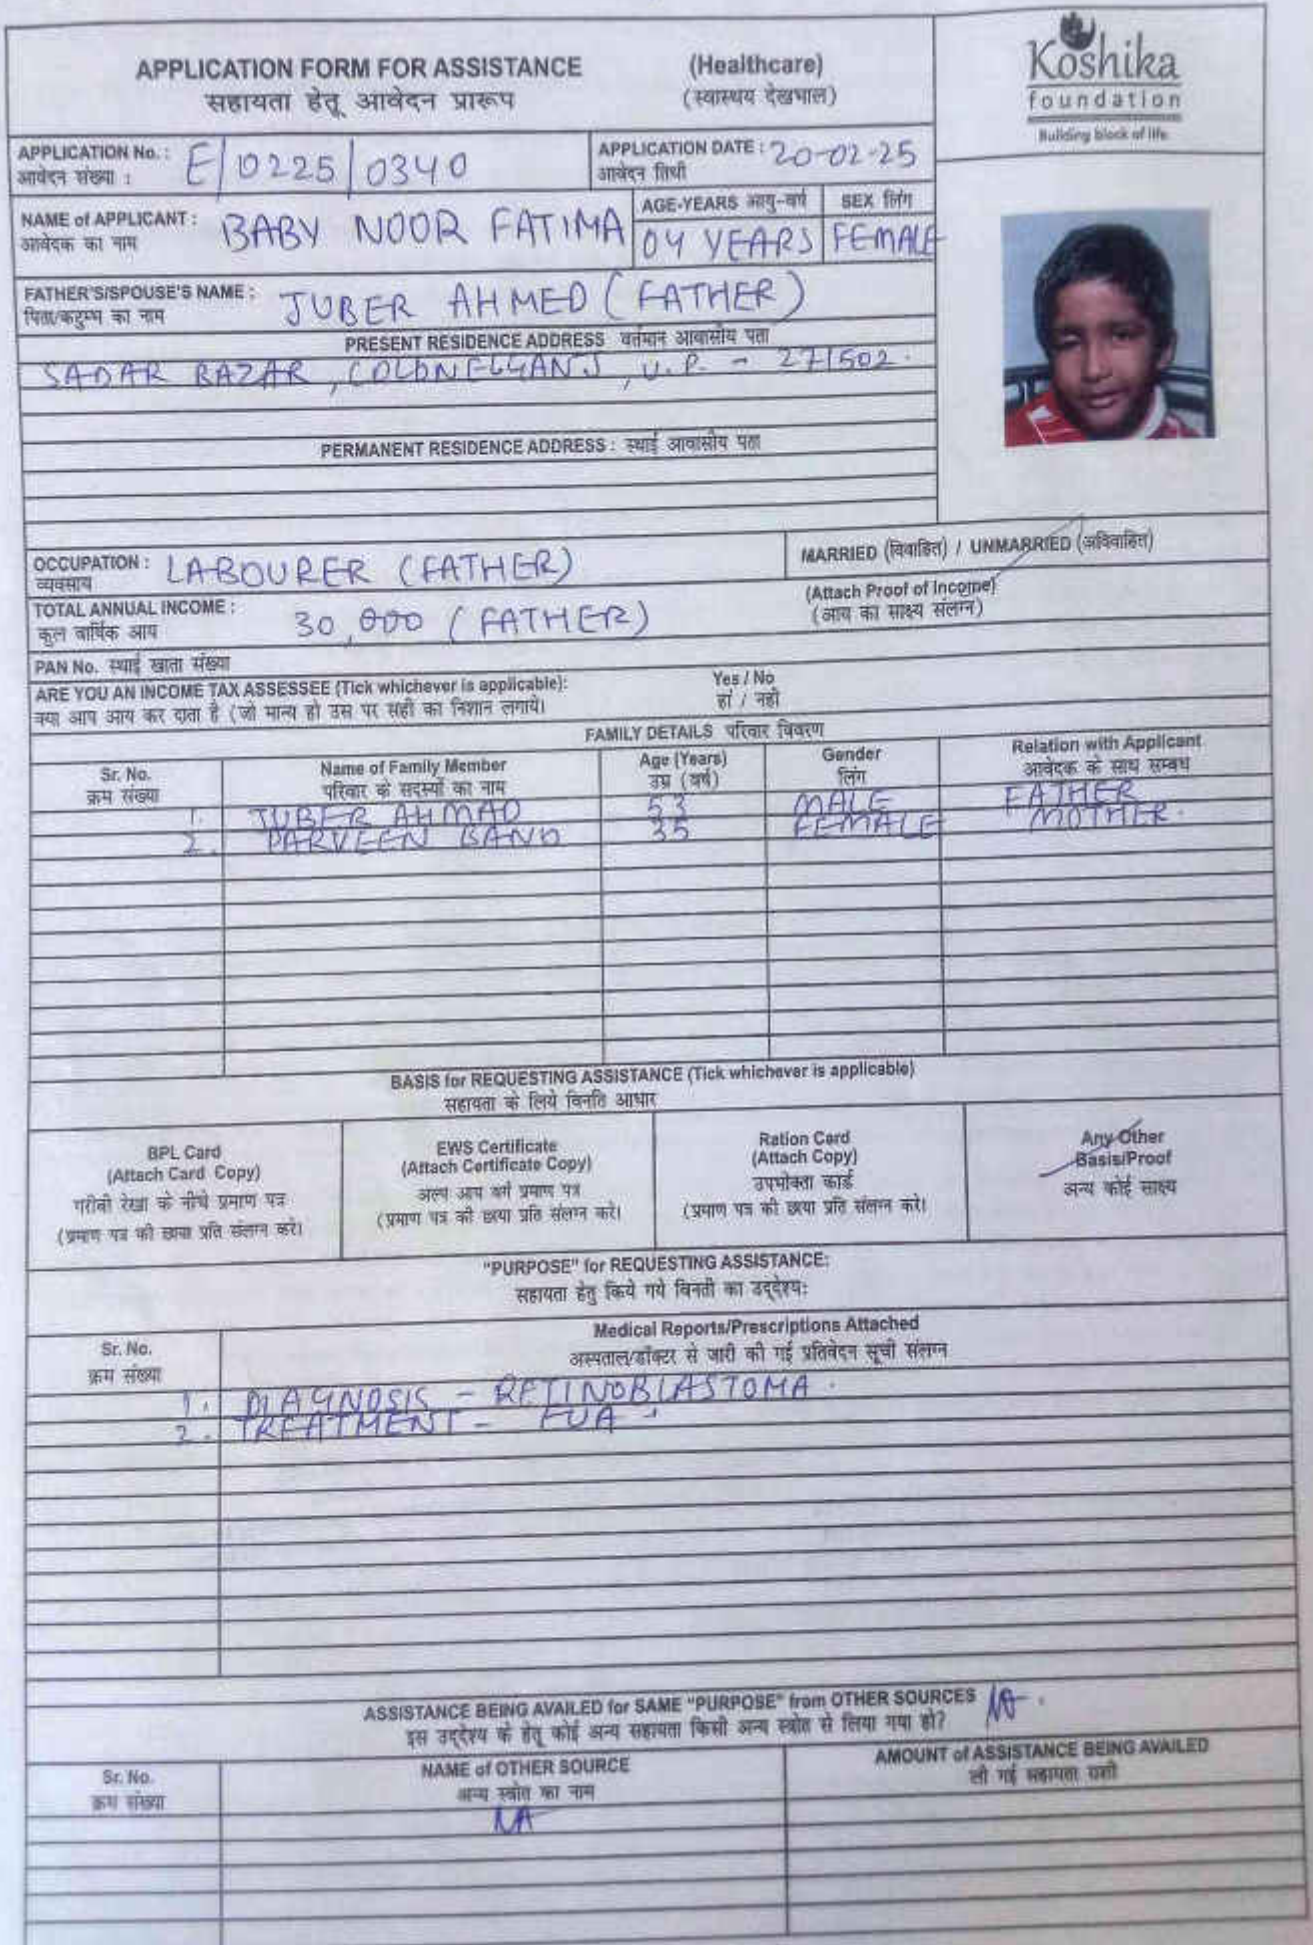 APPLICATION FORM FOR ASSISTANCE (Healthcare)
सहायता हेतू आवेदन प्रारूप (स्वास्थय देखभाल)
Koshika
foundation
Building block of life
APPLICATION No. : E/0225/0340
आवेदन संख्या :
APPLICATION DATE : 20-02-25
आवेदन तिथी
NAME of APPLICANT : BABY NOOR FATIMA
आवेदक का नाम
AGE-YEARS आयु-वर्ष
04 YEARS
SEX लिंग
FEMALE
FATHER'S/SPOUSE'S NAME : JUBER AHMED (FATHER)
पिता/कटुम्भ का नाम
PRESENT RESIDENCE ADDRESS वर्तमान आवासीय पता
SADAR BAZAR, COLONELGANJ, U.P. - 271502.
PERMANENT RESIDENCE ADDRESS : स्थाई आवासीय पता
OCCUPATION : LABOURER (FATHER)
व्यवसाय
MARRIED (विवाहित) / UNMARRIED (अविवाहित)
TOTAL ANNUAL INCOME : 30,000 (FATHER)
कुल वार्षिक आय
(Attach Proof of Income)
(आय का साक्ष्य संलग्न)
PAN No. स्थाई खाता संख्या
ARE YOU AN INCOME TAX ASSESSEE (Tick whichever is applicable): Yes / No
क्या आप आय कर दाता है (जो मान्य हो उस पर सही का निशान लगाये। हां / नहीं
FAMILY DETAILS परिवार विवरण
Sr. No. Name of Family Member Age (Years) Gender Relation with Applicant
क्रम संख्या परिवार के सदस्यों का नाम उम्र (वर्ष) लिंग आवेदक के साथ सम्बंध
1. JUBER AHMAD 53 MALE FATHER
2. PARVEEN BANO 35 FEMALE MOTHER.
BASIS for REQUESTING ASSISTANCE (Tick whichever is applicable)
सहायता के लिये विनति आधार
BPL Card
(Attach Card Copy)
गरीबी रेखा के नीचे प्रमाण पत्र
(प्रमाण पत्र की छाया प्रति संलग्न करे।
EWS Certificate
(Attach Certificate Copy)
अल्प आय वर्ग प्रमाण पत्र
(प्रमाण पत्र की छाया प्रति संलग्न करे।
Ration Card
(Attach Copy)
उपभोक्ता कार्ड
(प्रमाण पत्र की छाया प्रति संलग्न करे।
Any Other
Basis/Proof
अन्य कोई साक्ष्य
"PURPOSE" for REQUESTING ASSISTANCE:
सहायता हेतु किये गये विनती का उद्देश्यः
Sr. No. Medical Reports/Prescriptions Attached
क्रम संख्या अस्पताल/डॉक्टर से जारी की गई प्रतिवेदन सूची संलग्न
1. DIAGNOSIS - RETINOBLASTOMA.
2. TREATMENT - EUA.
ASSISTANCE BEING AVAILED for SAME "PURPOSE" from OTHER SOURCES NA.
इस उद्देश्य के हेतू कोई अन्य सहायता किसी अन्य स्त्रोत से लिया गया हो?
Sr. No. NAME of OTHER SOURCE AMOUNT of ASSISTANCE BEING AVAILED
क्रम संख्या अन्य स्त्रोत का नाम ली गई सहायता राशी
NA